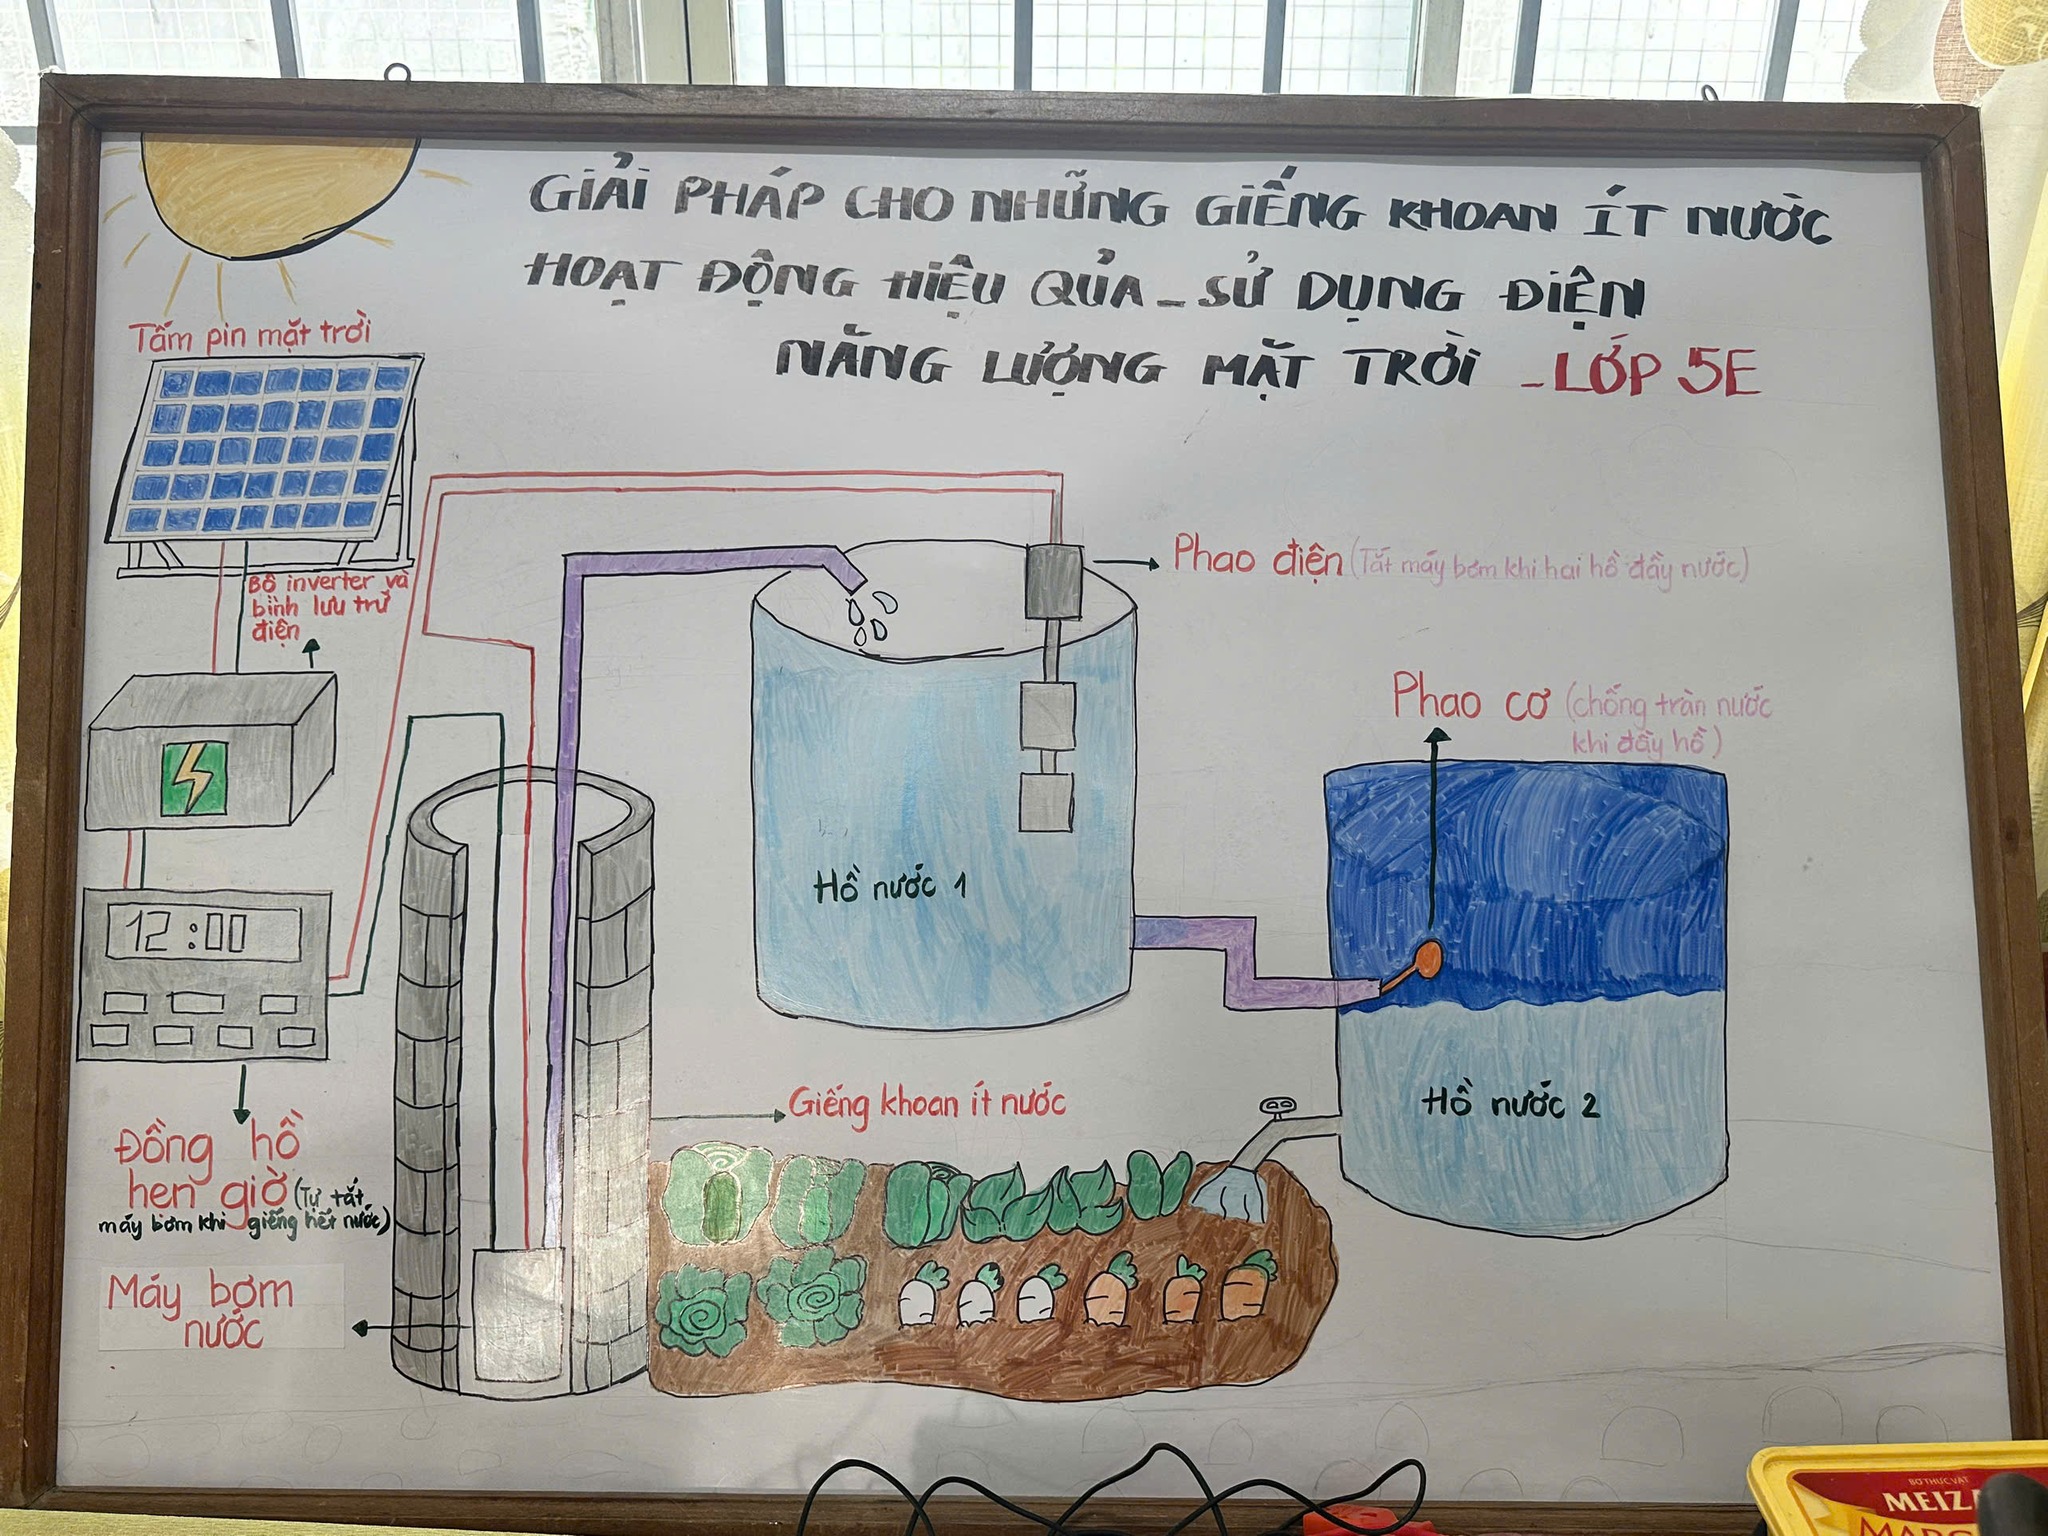 GIẢI PHÁP CHO NHỮNG GIẾNG KHOAN ÍT NƯỚC
HOẠT ĐỘNG HIỆU QỦA - SỬ DỤNG ĐIỆN
NĂNG LƯỢNG MẶT TRỜI - LỚP 5E
Tấm pin mặt trời
Bộ inverter và
bình lưu trữ
điện
Phao điện (Tắt máy bơm khi hai hồ đầy nước)
Phao cơ (chống tràn nước
khi đầy hồ)
Hồ nước 1
12:00
Giếng khoan ít nước
Hồ nước 2
Đồng hồ
hẹn giờ (Tự tắt
máy bơm khi giếng hết nước)
Máy bơm
nước
BƠ THỰC VẬT
MEIZ